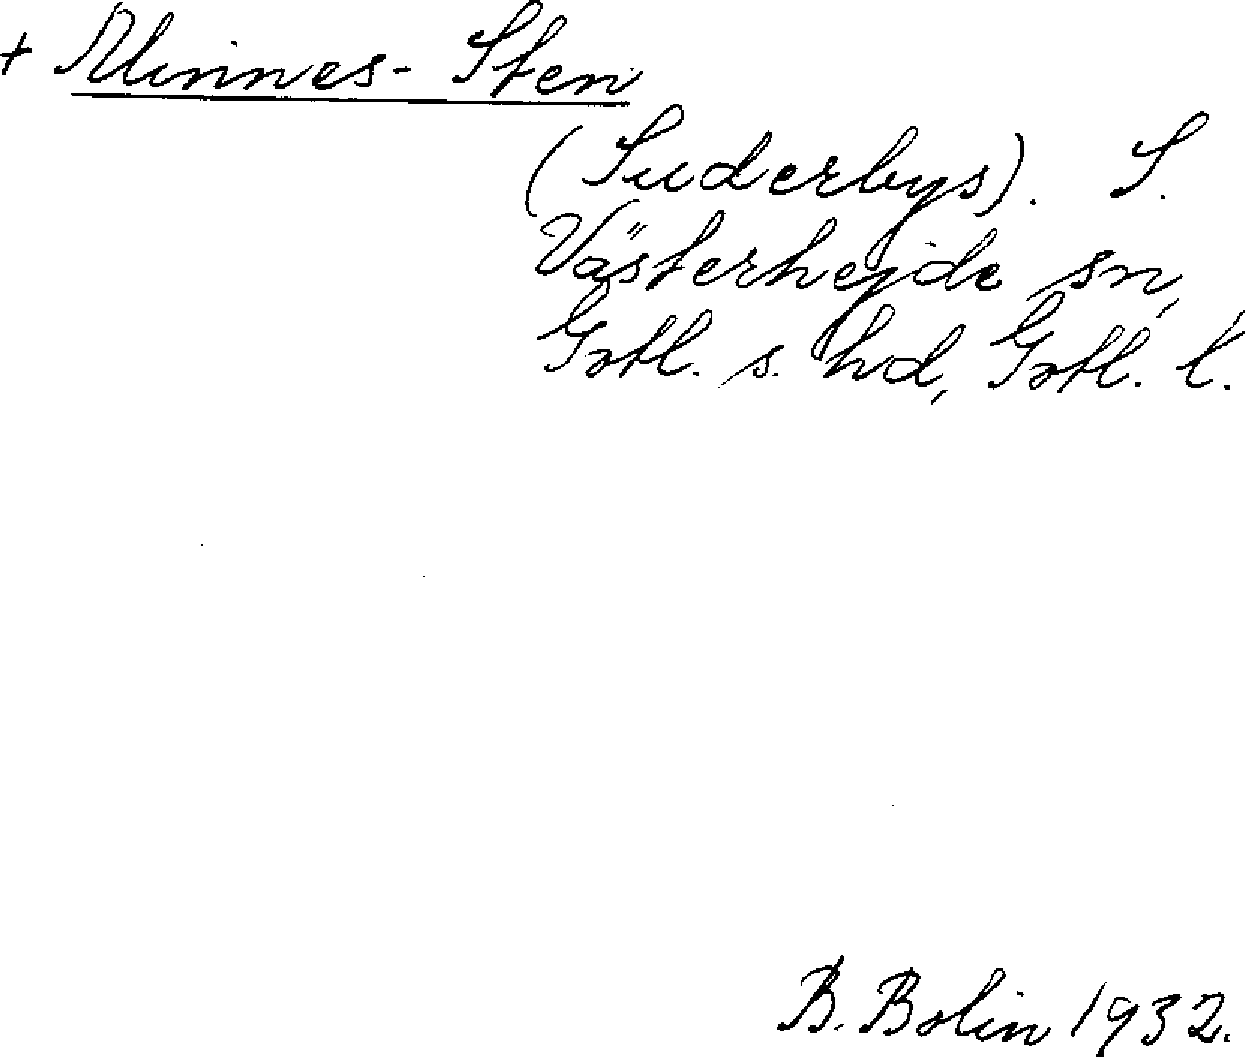 + Minnes-Sten
(Suderbys). S.
Västerhejde sn,
Gotl. s. hd, Gotl. l.
B. Bolin 1932.